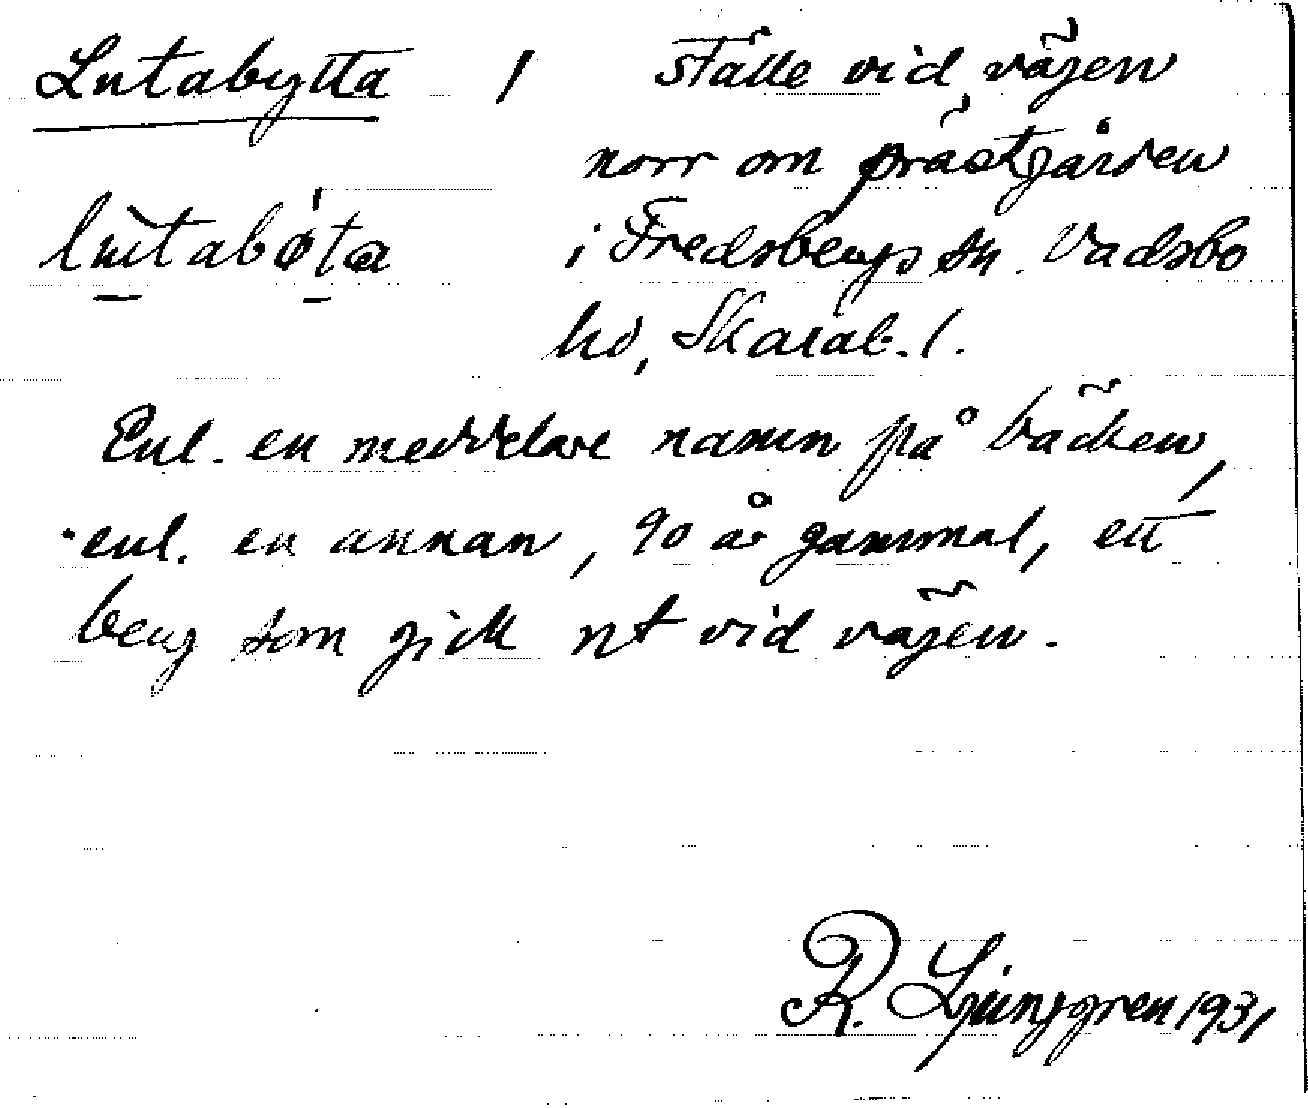 Lutabytta / ställe vid vägen
norr om prästgården
lu̱tabø̱ta i Fredsbergs sn. Vadsbo
hd, Skarab. l.
Enl. en meddelare namn på bäcken,
enl. en annan, 90 år gammal, ett
berg som gick ut vid vägen.
R. Ljunggren 1931